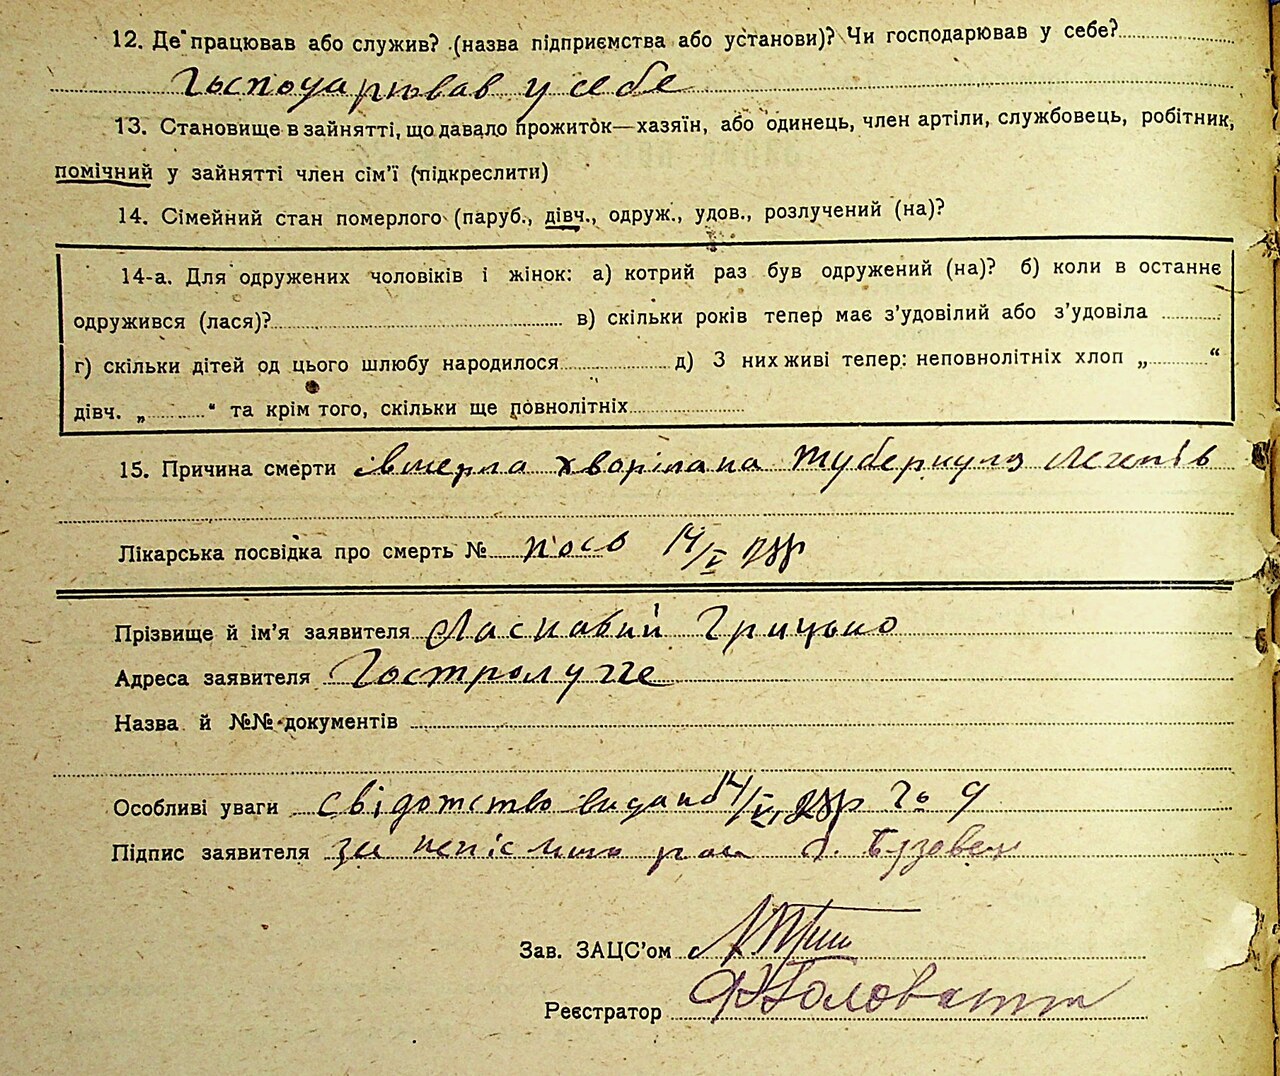 12. Де працював або служив? (назва підприємства або установи)? Чи господарював у себе?
Господарював у себе
13. Становище в зайнятті, що давало прожиток—хазяїн, або одинець, член артіли, службовець, робітник,
помічний у зайнятті член сім'ї (підкреслити)
14. Сімейний стан померлого (паруб., дівч., одруж., удов., розлучений (на)?
14-а. Для одружених чоловіків і жінок: а) котрий раз був одружений (на)? б) коли в останнє
одружився (лася)? в) скільки років тепер має з'удовілий або з'удовіла
г) скільки дітей од цього шлюбу народилося д) З них живі тепер: неповнолітніх хлоп „ “
дівч. „ “ та крім того, скільки ще повнолітніх
15. Причина смерти вмерла хворіла на туберкульоз легенів
Лікарська посвідка про смерть № 14/V
Прізвище й ім'я заявителя Ласкавий Грицько
Адреса заявителя Гостролуччє
Назва й №№ документів
Особливі уваги свідотство видано 14/V № 9
Підпис заявителя за
Зав. ЗАЦС'ом
Реєстратор